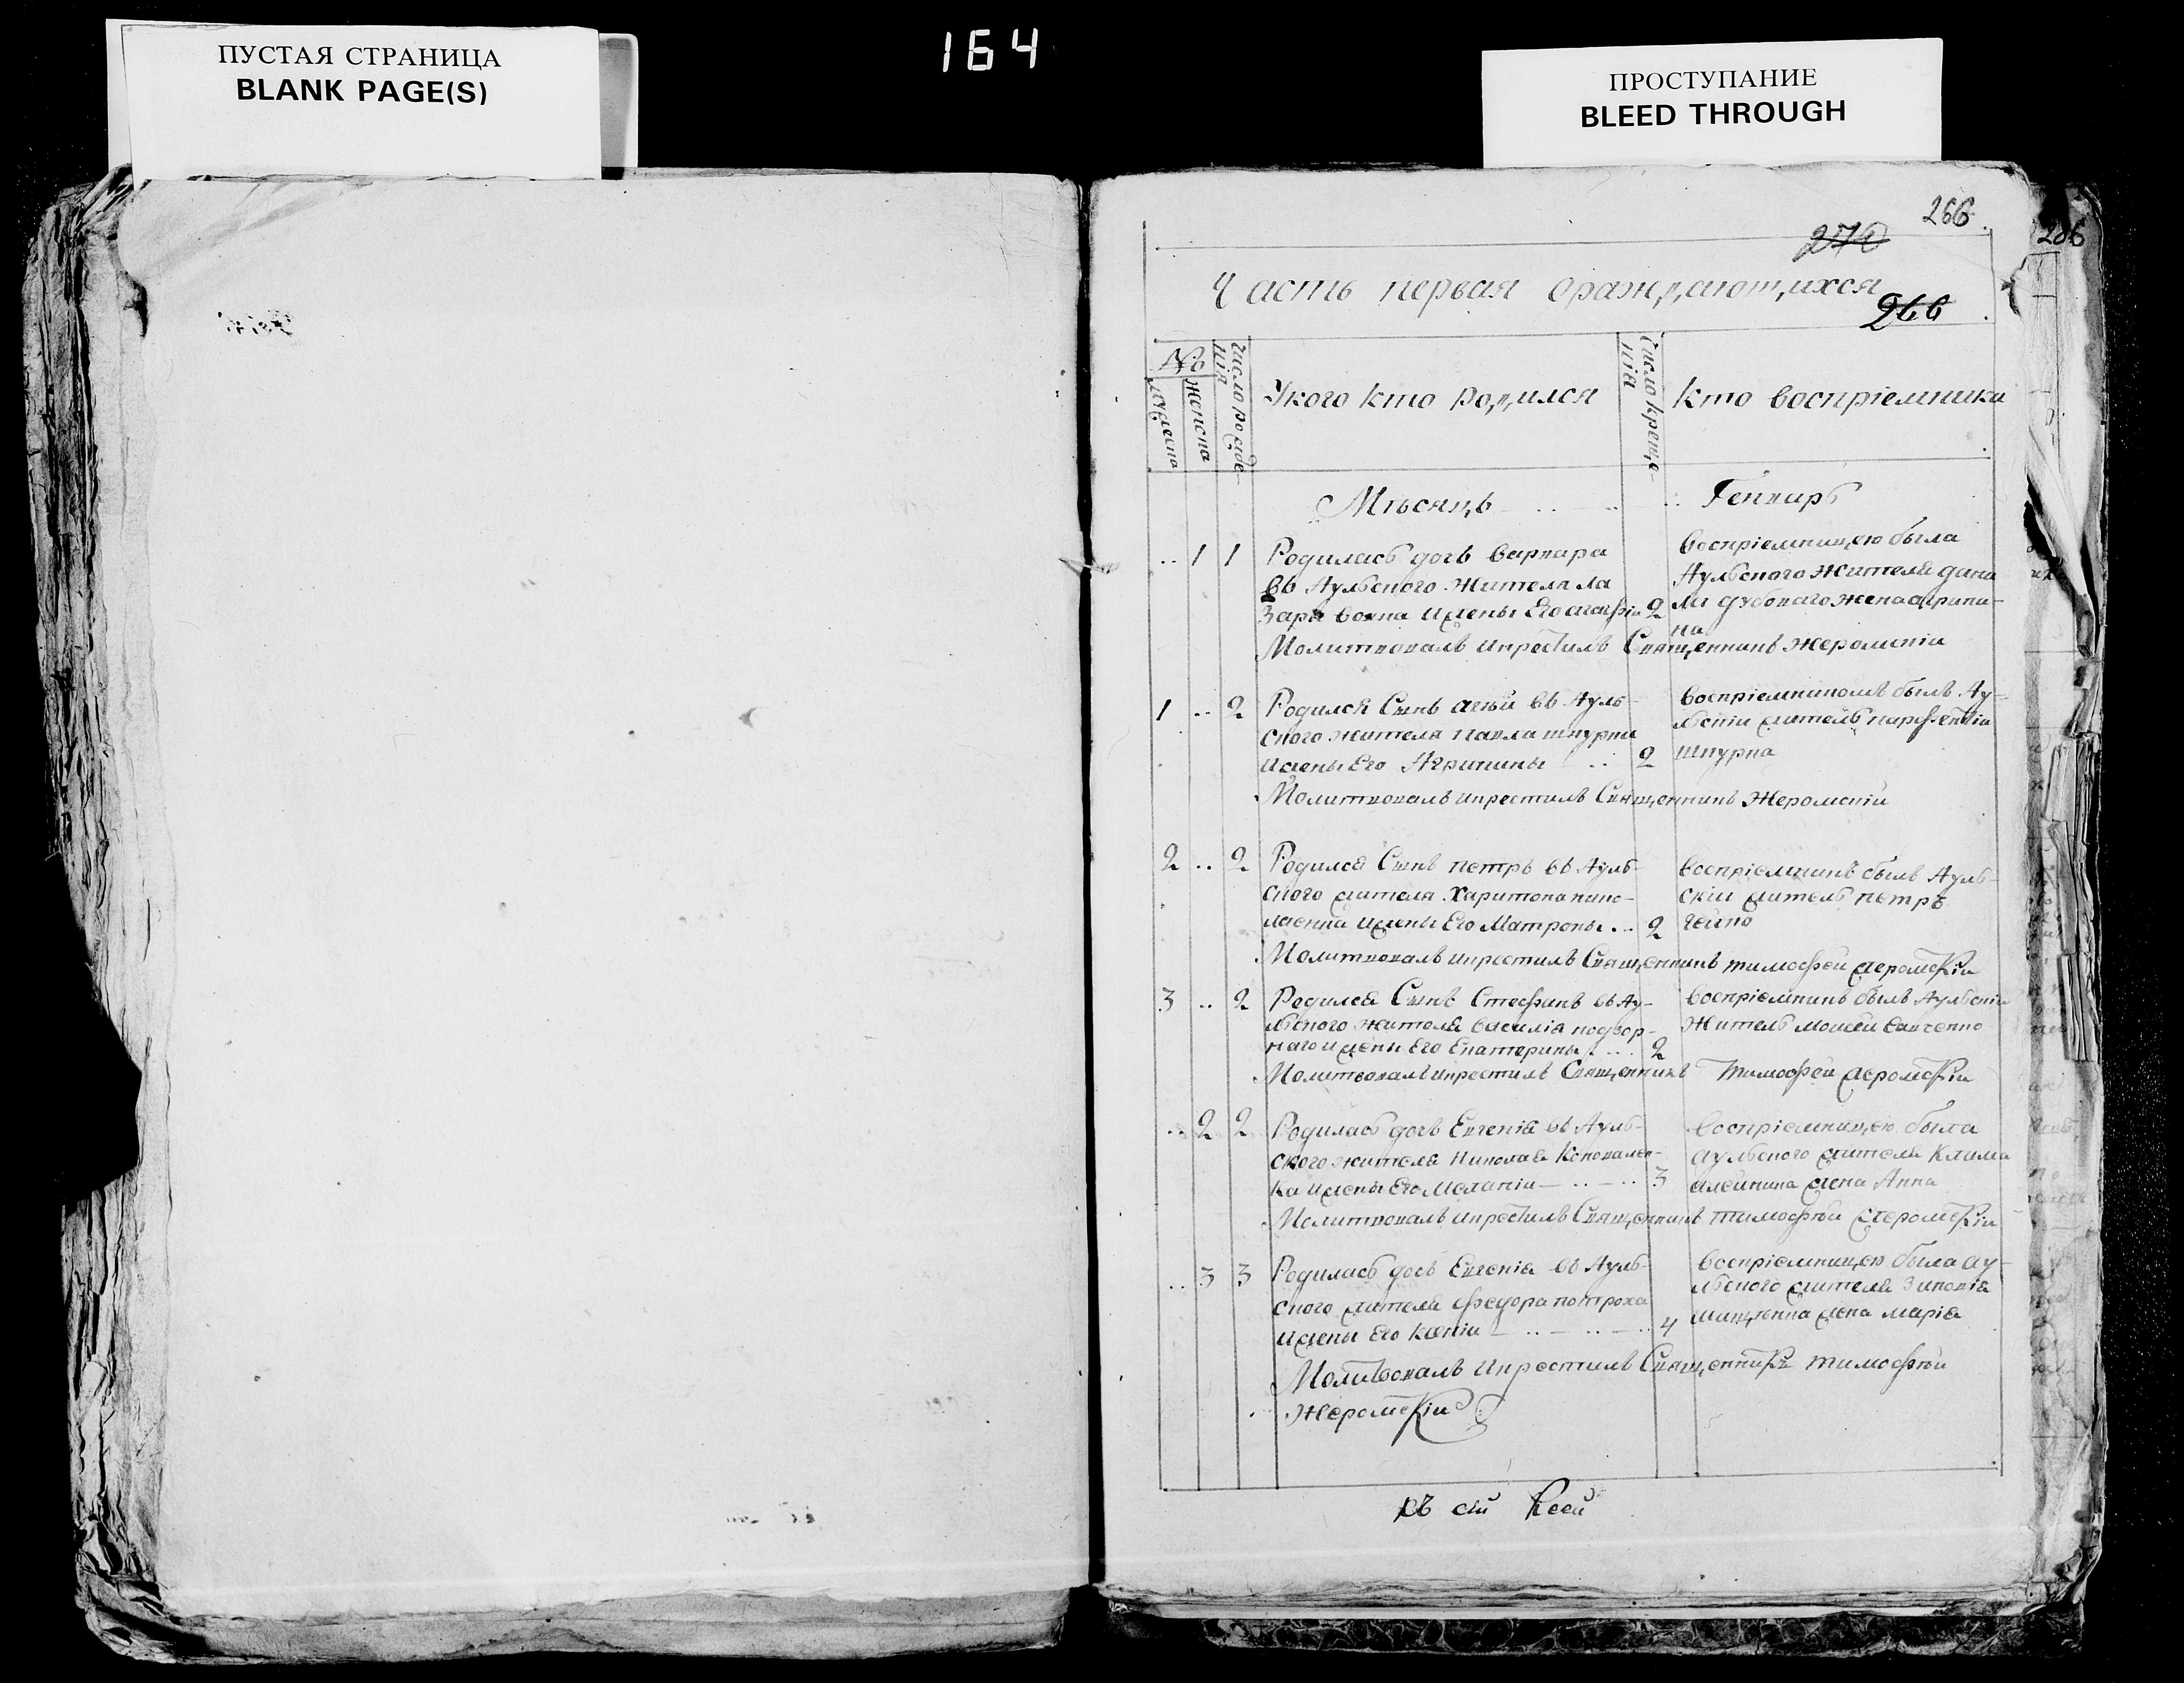 ПУСТАЯ СТРАНИЦА
BLANK PAGE(S)
164
ПРОСТУПАНИЕ
BLEED THROUGH
266
270
Часть первая ораждающихся
266
№
мужеска
женска
число рожде-
нія
Укого кто родился
Число креще-
нія
кто воспріемники
Мѣсяцъ Генварь
.. 1 1 Родилась дочь варвара
въ Аульского жителя ла
заря вовка ижены Его агафіи 2
воспріемницею была
Аульского жителя дани
ла дубоваго жена агрипи-
на
Молитвовалъ икрестилъ Священникъ жеромскіи
1 .. 2 Родился Сынъ въ Ауль-
ского жителя павла шкурки
ижены Его Агрипины .. 2
воспріемникомъ былъ Ау-
льскіи житель парфентіи
шкурка
Молитвовалъ икрестилъ Священникъ Жеромскій
2 .. 2 Родился Сынъ петръ въ Ауль-
ского жителя Харитона
ижены Его Матроны .. 2
воспріемникъ былъ Ауль-
скіи житель петръ
чеико
Молитвовалъ икрестилъ Священникъ тимофеи жеромскіи
3 .. 2 Родился Сынъ Стефанъ въ Ау-
льского жителя василія подвор-
наго ижены Его Екатерины .. 2
воспріемникъ былъ Аульскіи
житель моисеи савченко
Молитвовалъ икрестилъ Священникъ Тимофеи жеромскіи
.. 2 2 Родилась дочь Евгенія въ Ауль-
ского жителя николая Коновален-
ка ижены Его Меланіи — .. — .. 3
воспріемницею была
аульского жителя клима
алеиника жена Анна
Молитвовалъ икрестилъ Священникъ тимофѣи жеромскіи
.. 3 3 Родилась дочь Евгенія въ Ауль-
ского жителя федора потроха
ижены Его ксеніи — .. — .. — .. 4
воспріемницею была ау-
льского жителя зиновія
жена марія
Молитвовалъ икрестилъ Священникъ тимофѣи
жеромскіи
къ сій